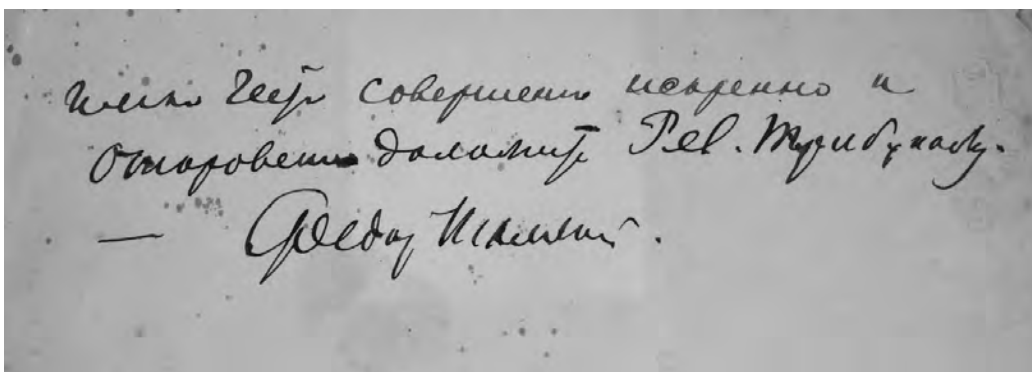 имею честь совершенно искренно и
откровенно доложить Рев. Трибуналу.
— Федор Шаляпин.